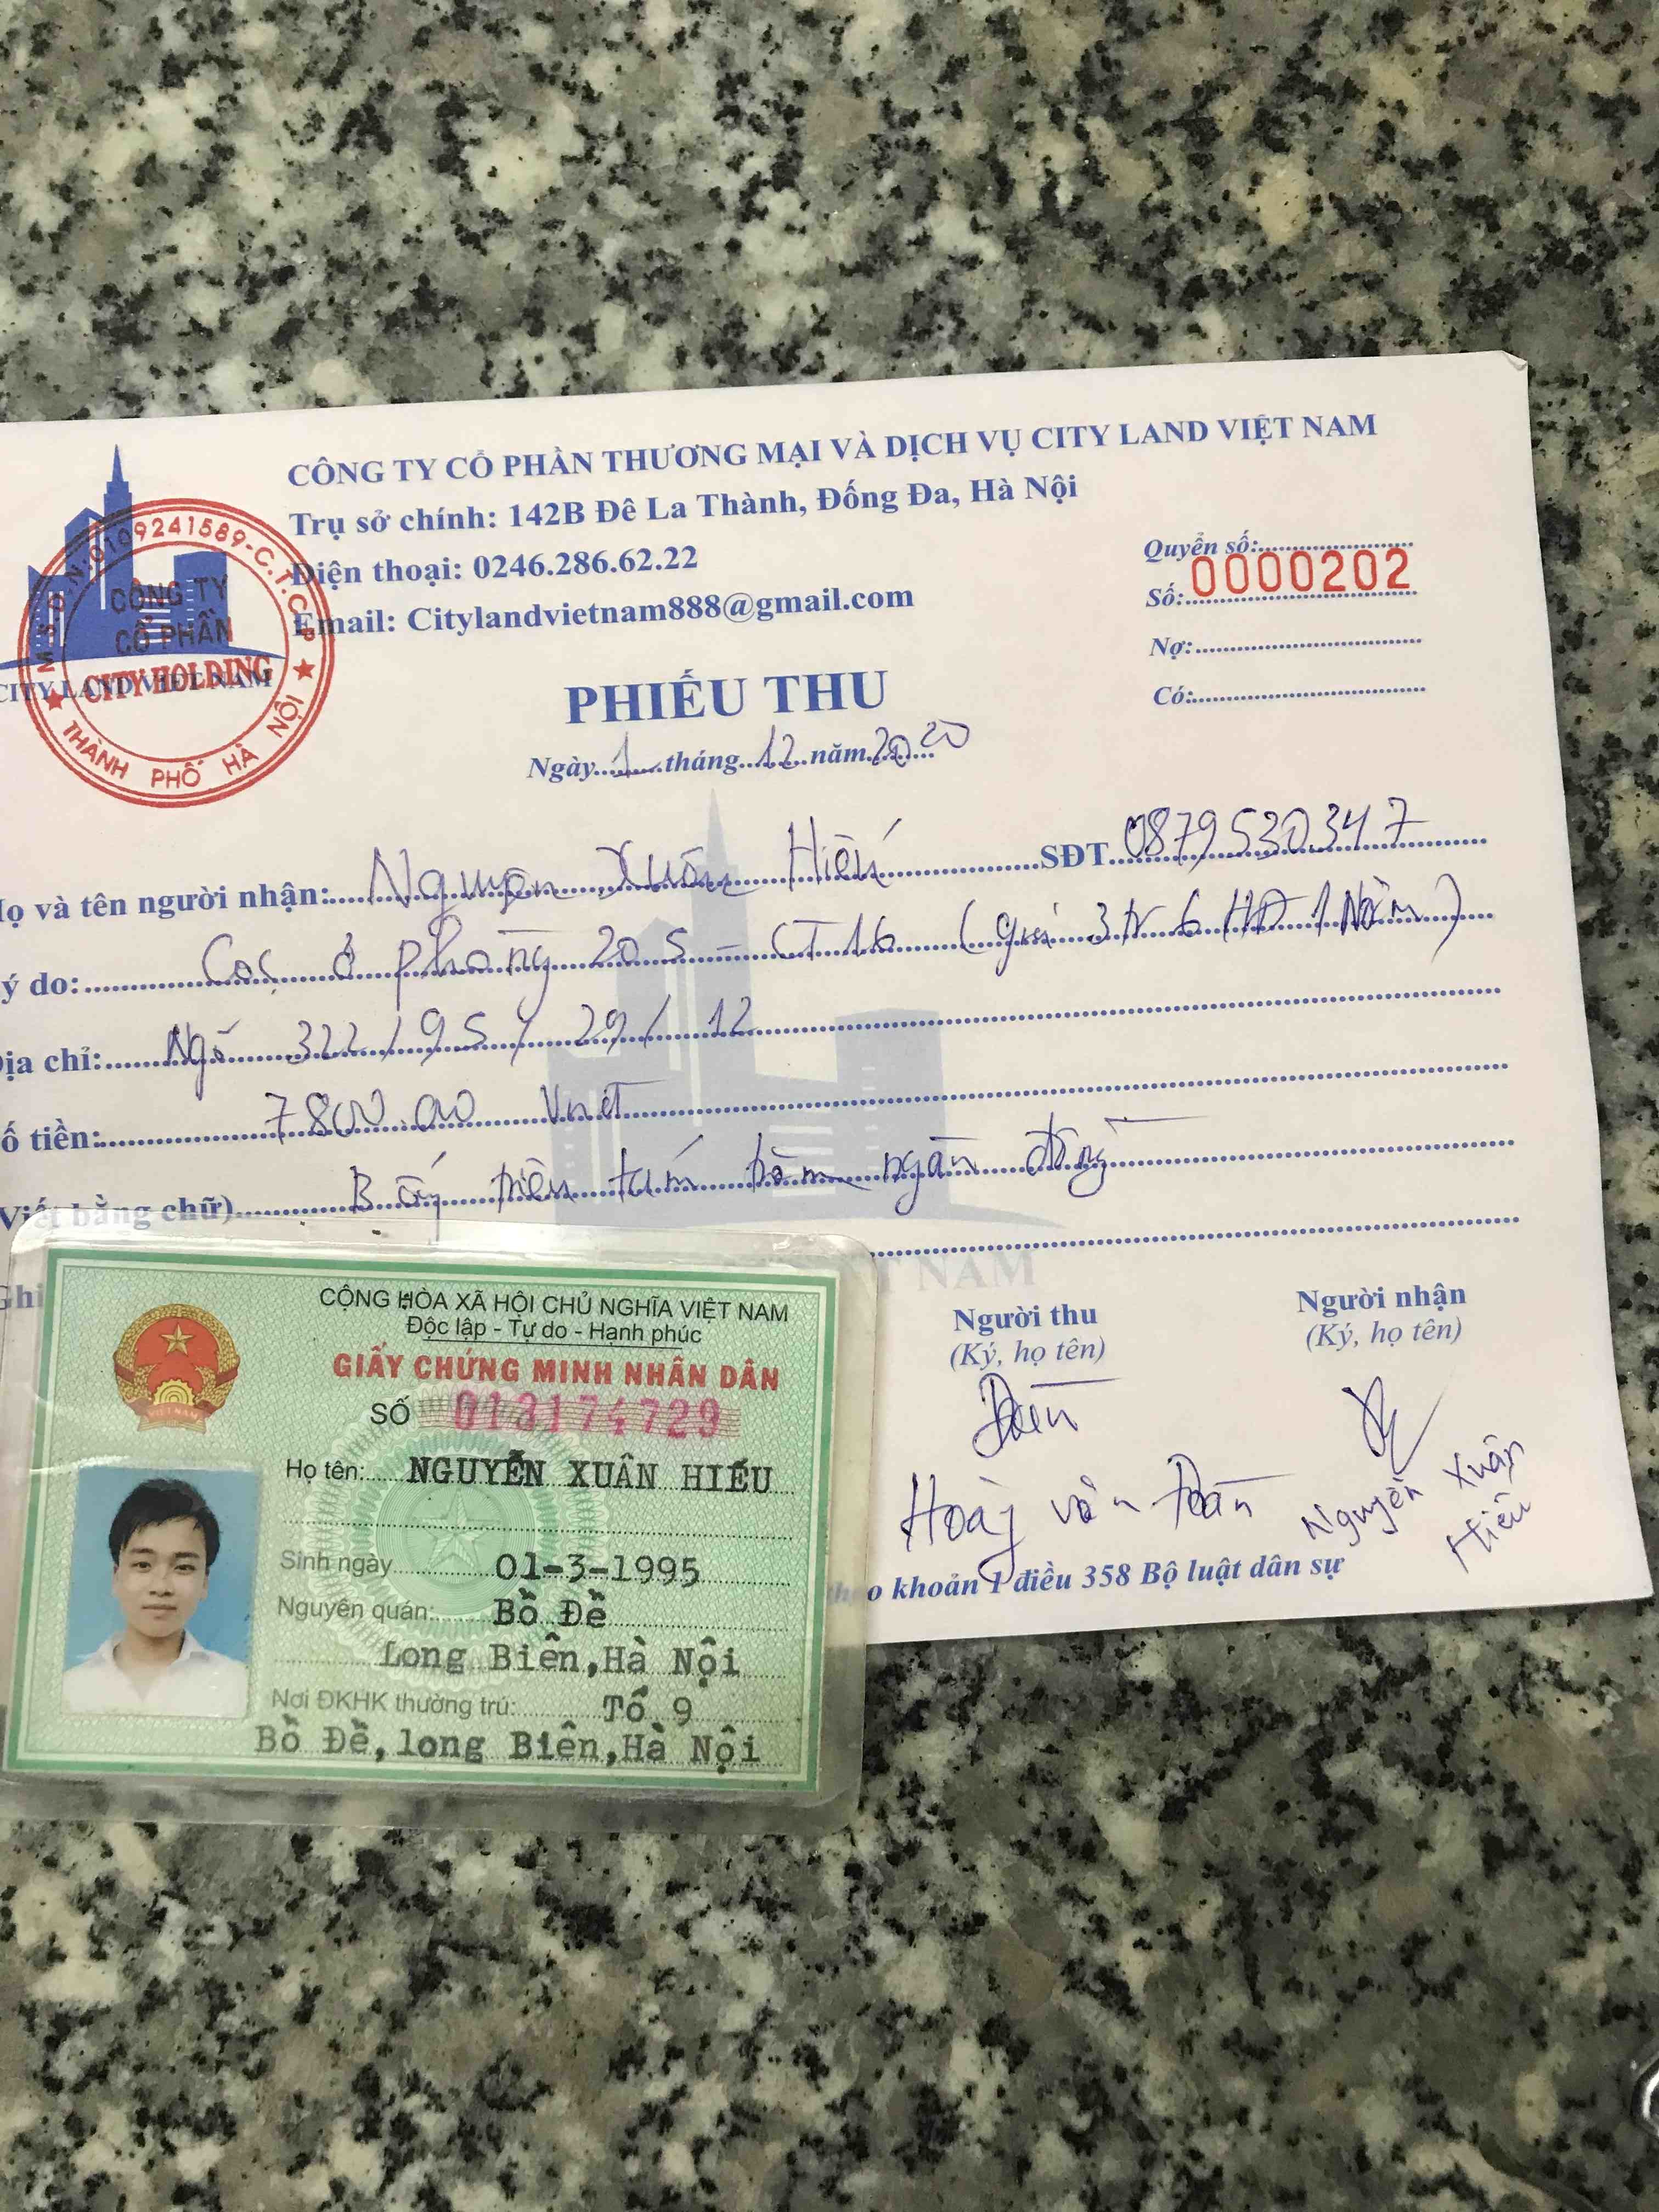 CÔNG TY CỔ PHẦN THƯƠNG MẠI VÀ DỊCH VỤ CITY LAND VIỆT NAM
Trụ sở chính: 142B Đê La Thành, Đống Đa, Hà Nội
Điện thoại: 0246.286.62.22
Email: Citylandvietnam888@gmail.com
M.S.D.N:0109241589-C.T.C.P
CÔNG TY
CỔ PHẦN
CITY HOLDING
THÀNH PHỐ HÀ NỘI
CITY LAND VIET NAM
Quyển số:
Số: 0000202
Nợ:
Có:
PHIẾU THU
Ngày 1 tháng 12 năm 2020
Họ và tên người nhận: Nguyễn Xuân Hiếu SĐT 0879530347
ý do: Cọc ở phòng 205 - CT16 ( 3tr 6 HĐ 1 Năm )
Địa chỉ: Ngõ 322/95/29/12
ố tiền: 7800.000 Vnđ
Viết bằng chữ) Bảy triệu tám trăm ngàn đồng
Ghi
T NAM
Người thu
(Ký, họ tên)
Người nhận
(Ký, họ tên)
Hoàng văn Đoàn
Nguyễn Xuân
Hiếu
theo khoản 1 điều 358 Bộ luật dân sự
CỘNG HÒA XÃ HỘI CHỦ NGHĨA VIỆT NAM
Độc lập - Tự do - Hạnh phúc
GIẤY CHỨNG MINH NHÂN DÂN
SỐ 013174729
VIỆT NAM
Họ tên: NGUYỄN XUÂN HIẾU
Sinh ngày 01-3-1995
Nguyên quán: Bồ Đề
Long Biên,Hà Nội
Nơi ĐKHK thường trú: Tổ 9
Bồ Đề,long Biên,Hà Nội